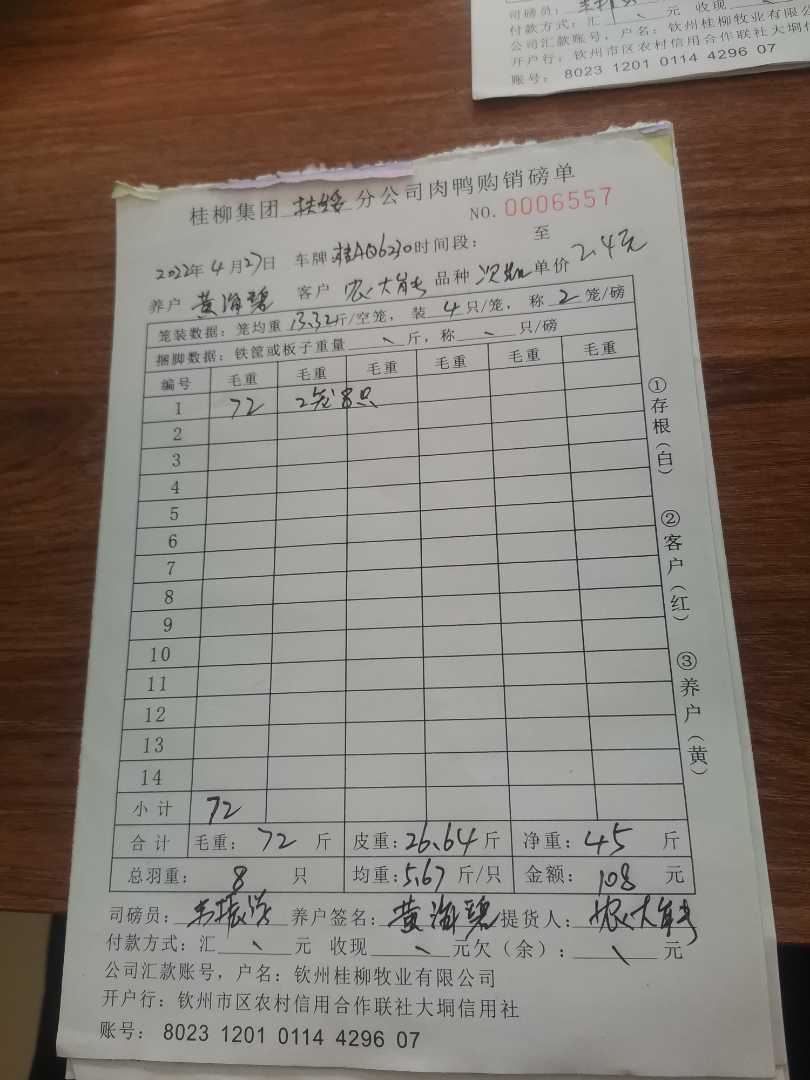 司磅员：
付款方式：汇 、 元 收现
公司汇款账号，户名：钦州桂柳牧业有限公司
开户行：钦州市区农村信用合作联社大垌信
账号： 8023 1201 0114 4296 07
桂柳集团 扶绥 分公司肉鸭购销磅单
NO. 0006557
2022年4月27日 车牌 桂AQ6230 时间段： 至
养户 黄海碧 客户 农大 品种 单价 2.4元
笼装数据：笼均重 13.32 斤/空笼， 装 4 只/笼， 称 2 笼/磅
捆脚数据：铁筐或板子重量 、 斤，称 、 只/磅
编号 毛重 毛重 毛重 毛重 毛重 毛重
1 72 2笼8只
2
3
4
5
6
7
8
9
10
11
12
13
14
小计 72
合计 毛重： 72 斤 皮重：26.64斤 净重：45 斤
总羽重： 8 只 均重：5.67 斤/只 金额：108 元
①存根（白） ②客户（红） ③养户（黄）
司磅员： 振 养户签名：黄海碧 提货人：农大
付款方式：汇 、 元 收现 、 元欠（余）： 、 元
公司汇款账号，户名：钦州桂柳牧业有限公司
开户行：钦州市区农村信用合作联社大垌信用社
账号： 8023 1201 0114 4296 07